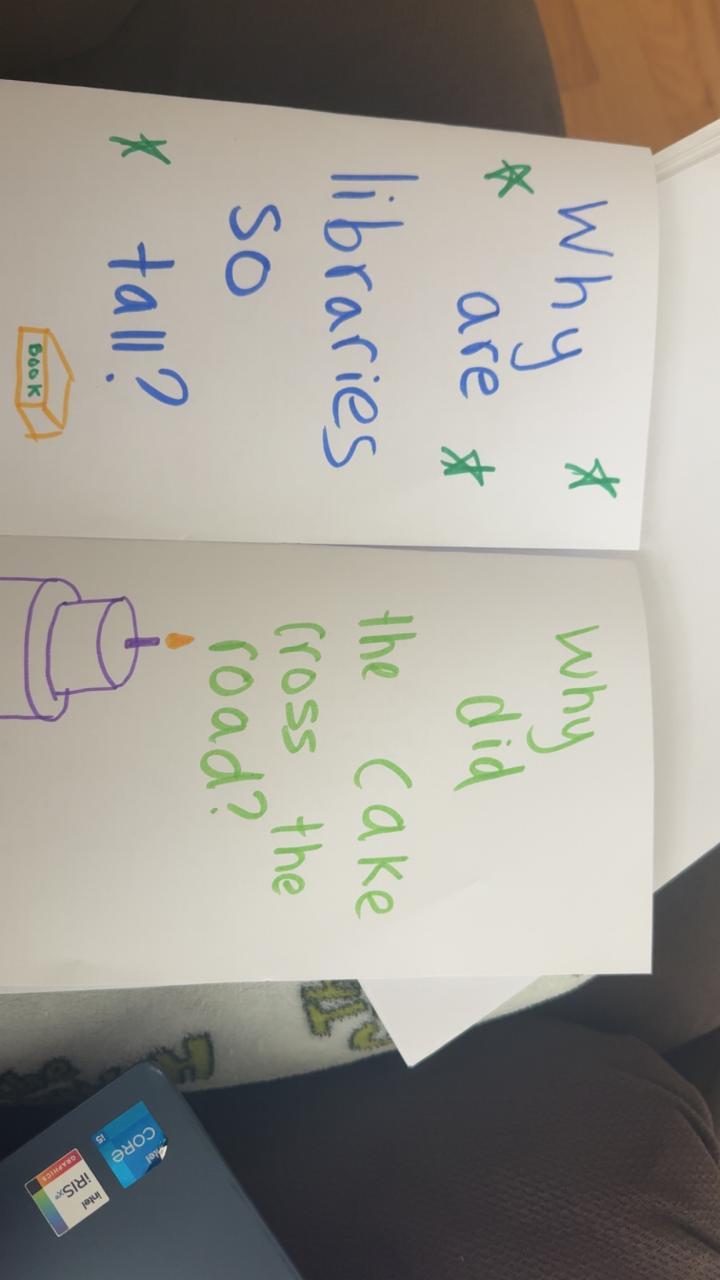 Why
are
libraries
so
tall?
BOOK
Why
did
the cake
cross the
road?
intel
CORE
i5
intel
iRIS Xe
GRAPHICS